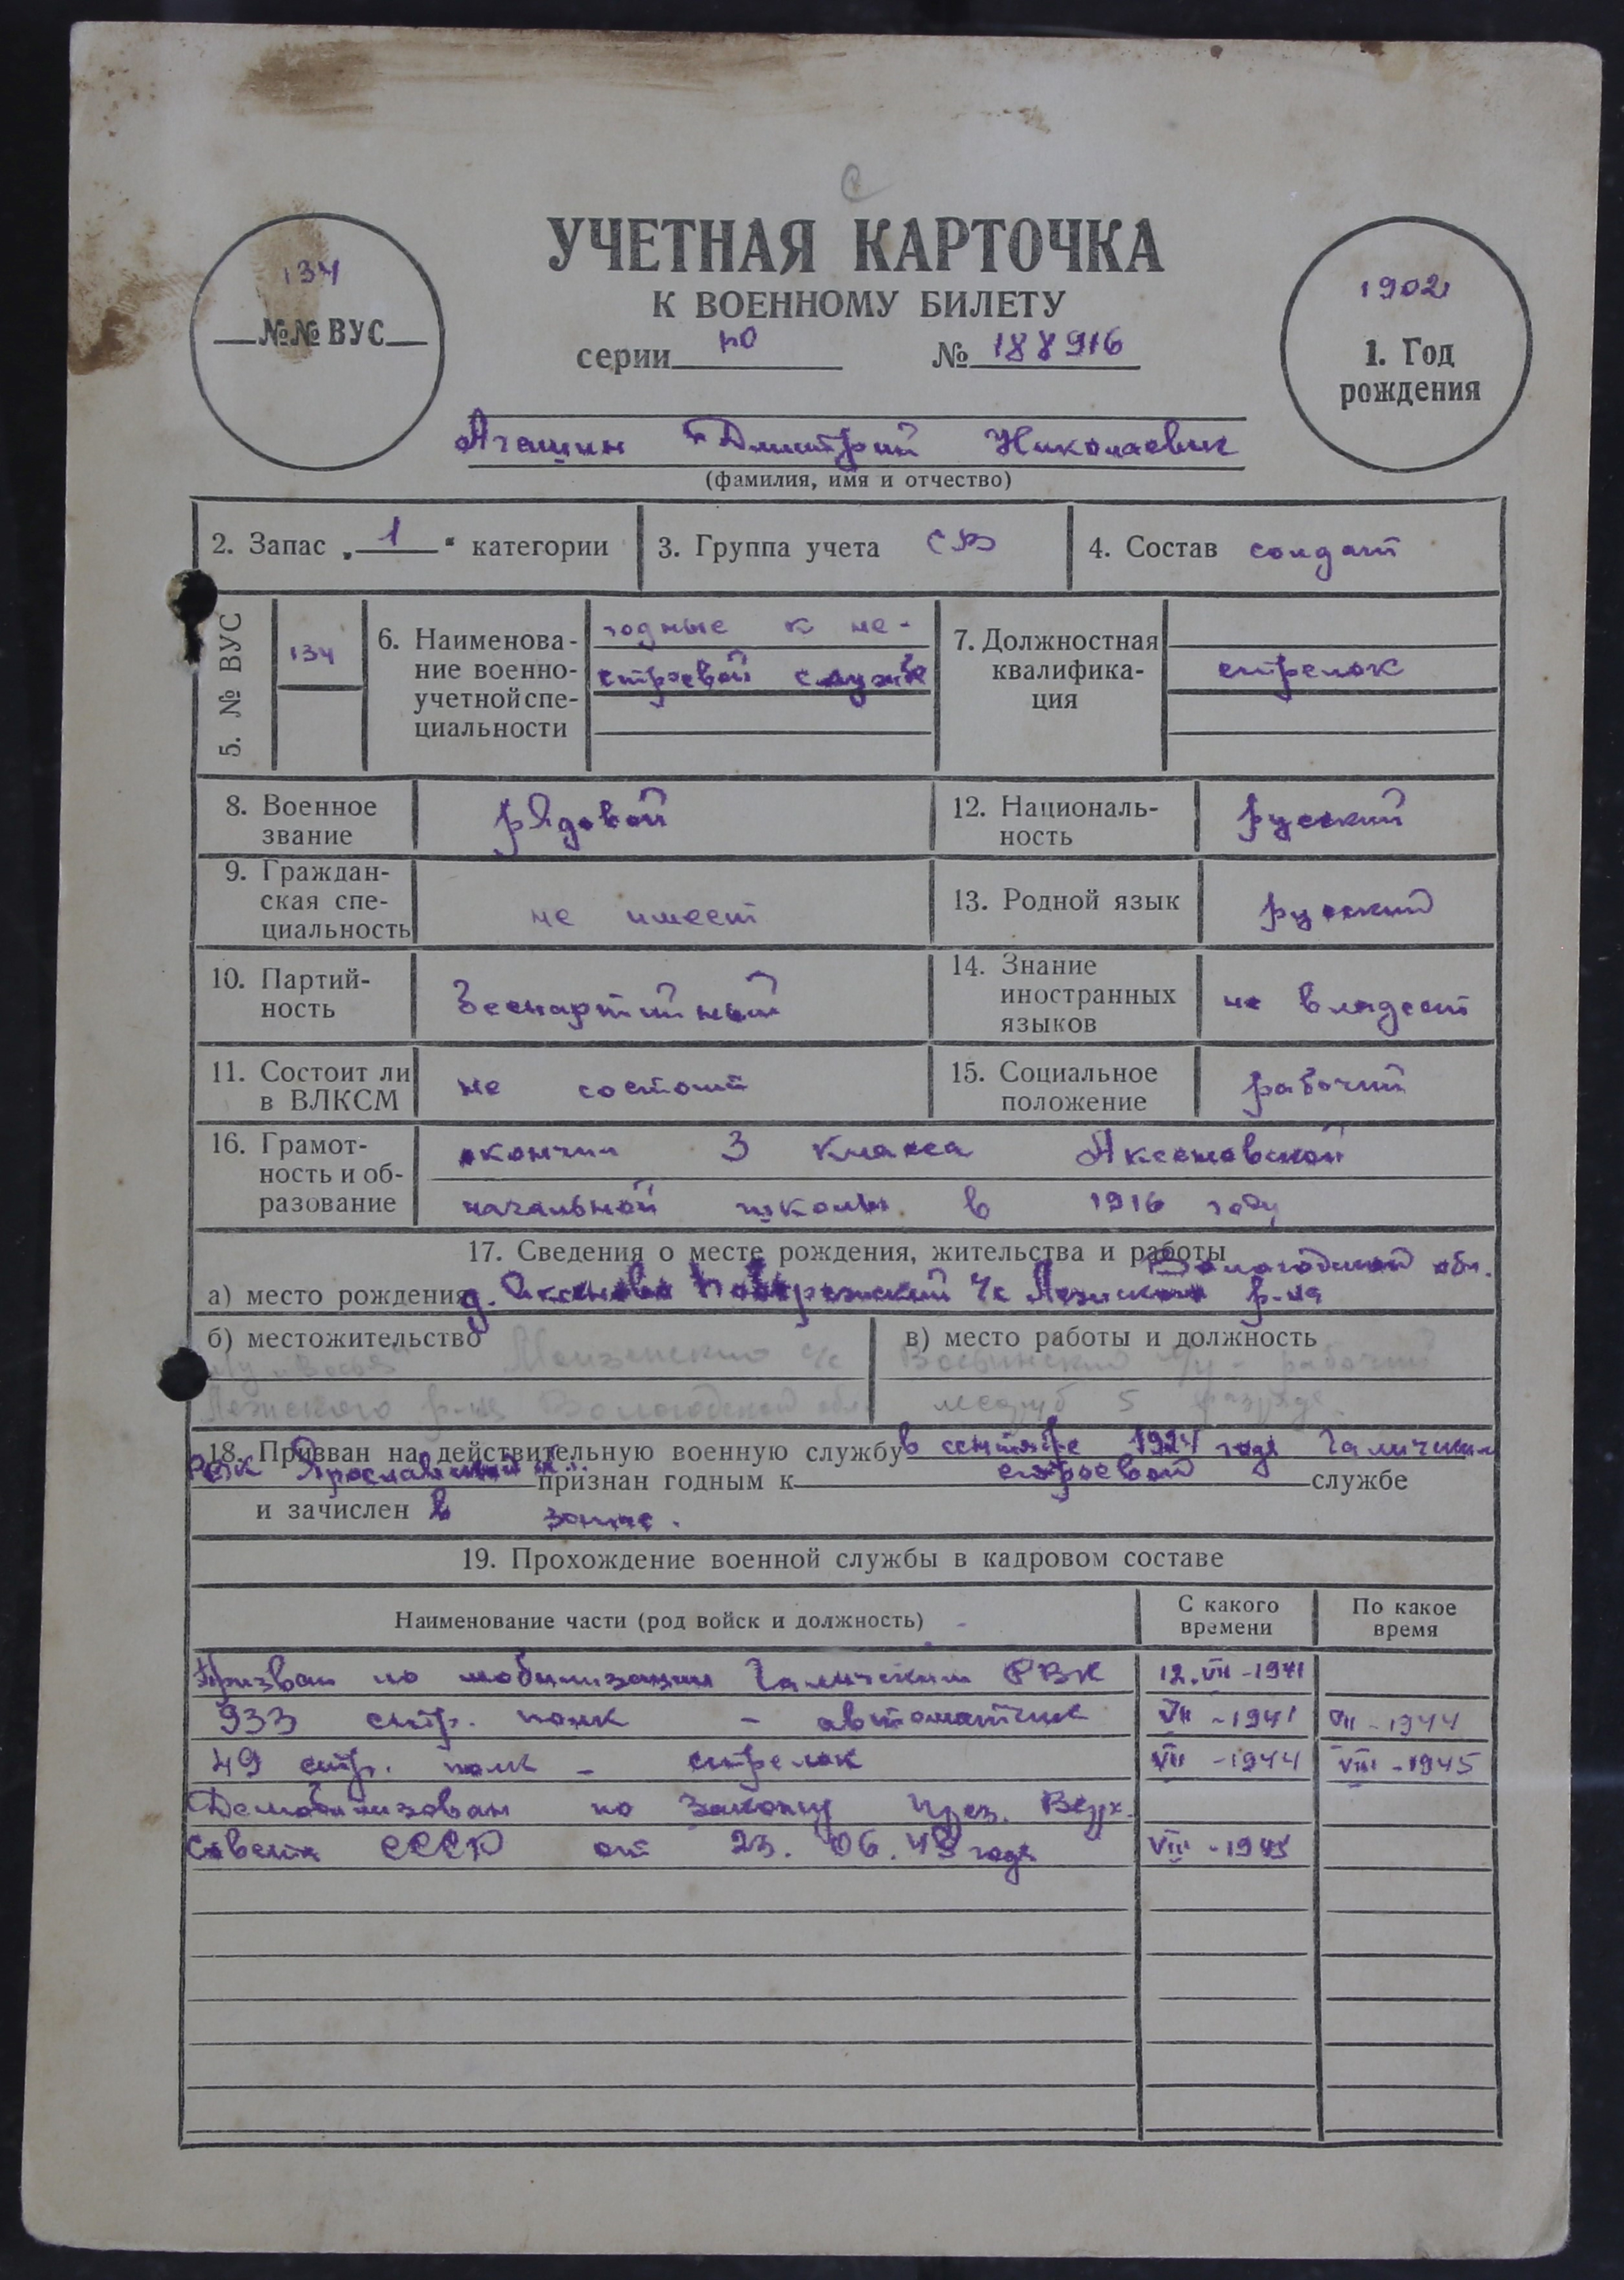 УЧЕТНАЯ КАРТОЧКА
К ВОЕННОМУ БИЛЕТУ
серии № 188916
134
№№ ВУС
1902
1. Год
рождения
Агашин Дмитрий Николаевич
(фамилия, имя и отчество)
2. Запас „ 1 “ категории
3. Группа учета СВ
4. Состав солдат
5. № ВУС
134
6. Наименова-
ние военно-
учетной спе-
циальности
годные к не-
строевой службе
7. Должностная
квалифика-
ция
стрелок
8. Военное
звание
рядовой
12. Националь-
ность
русский
9. Граждан-
ская спе-
циальность
не имеет
13. Родной язык
русский
10. Партий-
ность
беспартийный
14. Знание
иностранных
языков
не владеет
11. Состоит ли
в ВЛКСМ
не состоит
15. Социальное
положение
рабочий
16. Грамот-
ность и об-
разование
окончил 3 класса Аксеновской
начальной школы в 1916 году
17. Сведения о месте рождения, жительства и работы
Вологодской обл.
а) место рождения д. Аксеново с/с р-на
б) местожительство
Моизенского с/с
Лежского р-на Вологодской обл.
в) место работы и должность
рабочий
лесоруб 5 разряда
18. Призван на действительную военную службу в сентябре 1924 года Галичским
РВК Ярославской признан годным к строевой службе
и зачислен в запас.
19. Прохождение военной службы в кадровом составе
Наименование части (род войск и должность)
С какого
времени
По какое
время
Призван по мобилизации Галичским РВК 12.VII-1941
933 стр. полк - автоматчик VII-1941 VII-1944
49 стр. полк - стрелок VII-1944 VIII-1945
Демобилизован по Закону През. Верх.
Совета СССР от 23.06.45 года VIII-1945